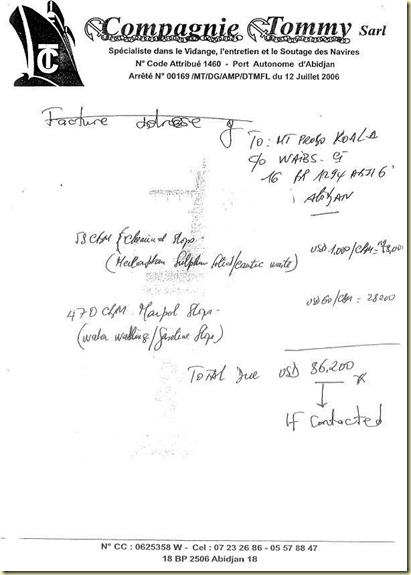 TC
Compagnie Tommy Sarl
Spécialiste dans le Vidange, l'entretien et le Soutage des Navires
N° Code Attribué 1460 - Port Autonome d'Abidjan
Arrêté N° 00169 /MT/DG/AMP/DTMFL du 12 Juillet 2006
Facture adressee
TO: MT PROBO KOALA
C/o WAIBS
16 BP 1294 ABJ 16
ABIDJAN
58 CBM Chemical Slops
USD 1.000/CBM = 58,000
(Mercaptan Sulphur Solid/caustic waste)
470 CBM Marpol Slops
USD 60/CBM = 28200
(water washings/Gasoline Slops)
TOTAL Due USD 86,200
If Contacted
N° CC : 0625358 W - Cel : 07 23 26 86 - 05 57 88 47
18 BP 2506 Abidjan 18